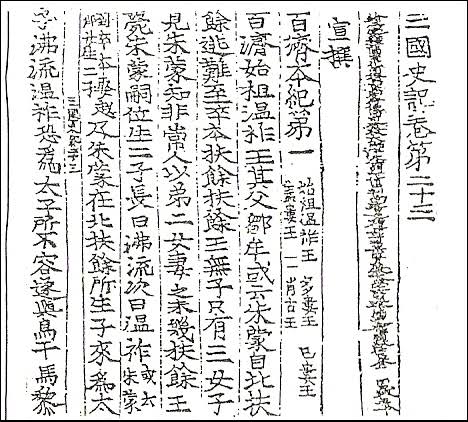 三國史記卷第二十三
宣撰
百濟夲紀第一 始祖温祚王 多婁王 己婁王
蓋婁王 肖古王
百濟始祖温祚王其父鄒牟或云朱蒙自北扶
餘逃難至卒夲扶餘扶餘王無子只有三女子
見朱蒙知非常人以第二女妻之未幾扶餘王
薨朱蒙嗣位生二子長曰沸流次曰温祚 或云朱蒙
到卒夲娶越郡女生二子 及朱蒙在北扶餘所生子來為太
子沸流温祚恐為太子所不容遂與烏干馬黎